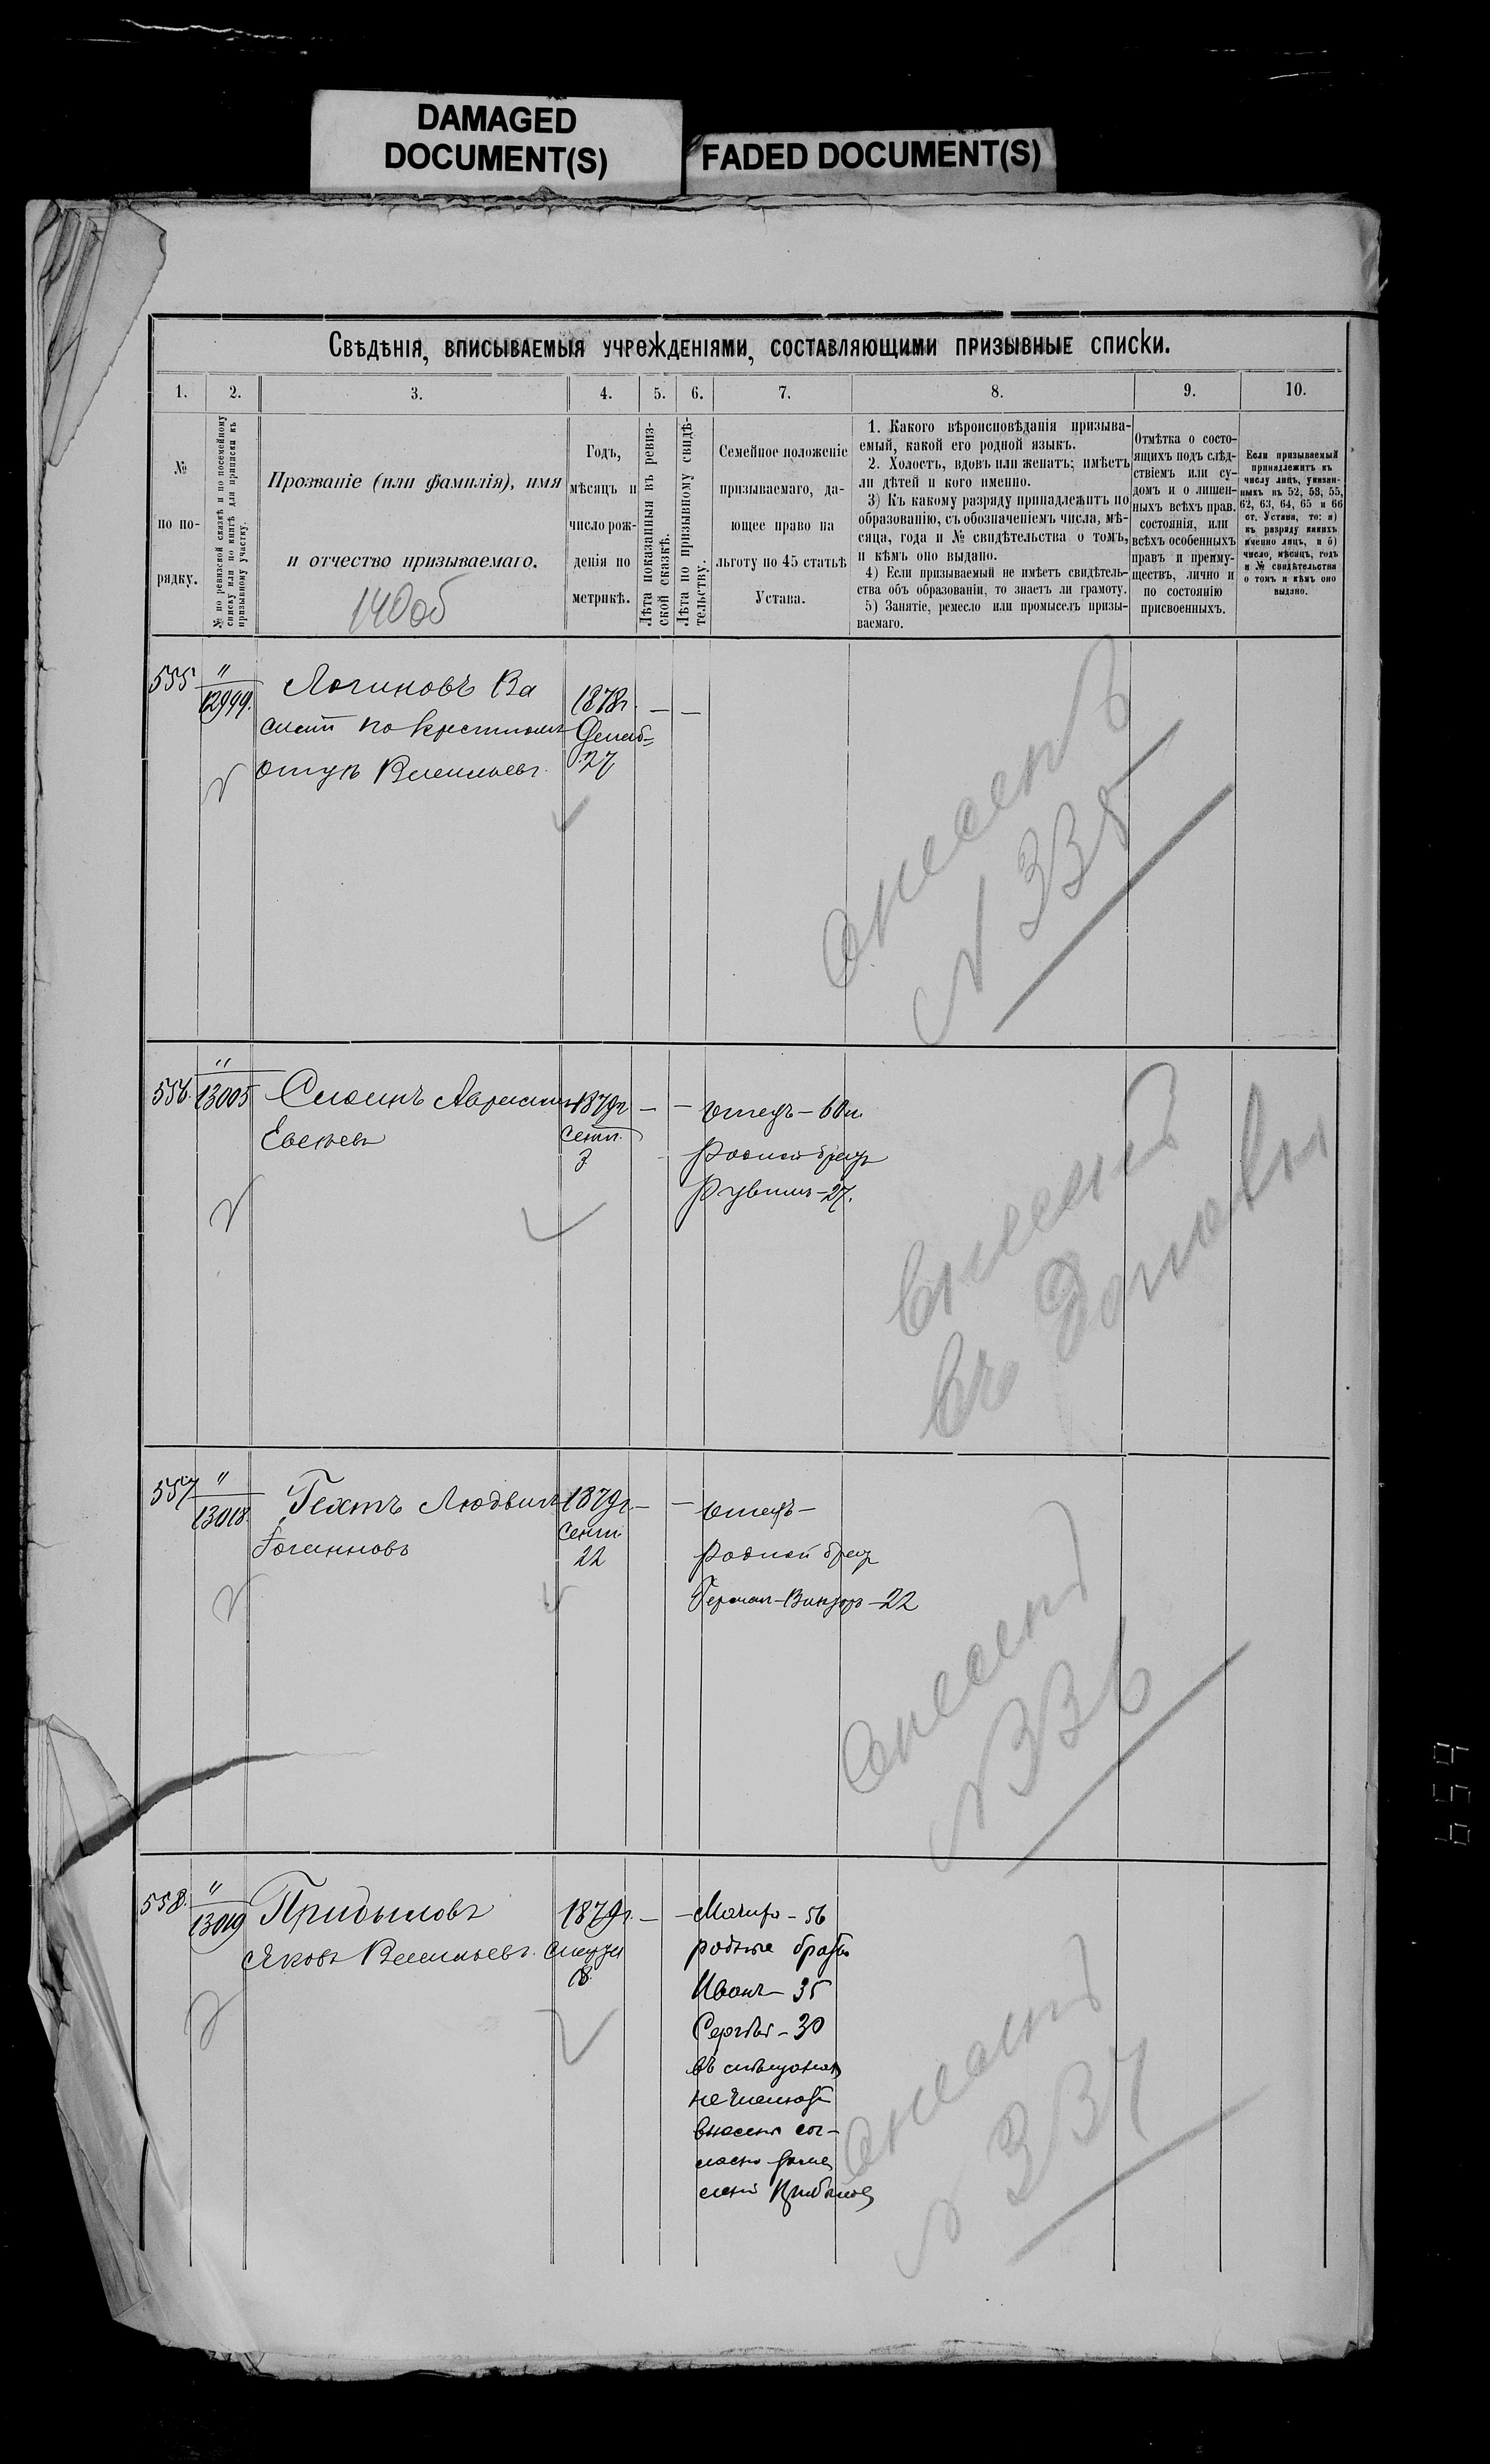 DAMAGED
DOCUMENT(S)
FADED DOCUMENT(S)
Свѣдѣнія, вписываемыя учрежденіями, составляющими призывные списки.
1.
2.
3.
4.
5.
6.
7.
8.
9.
10.
№
по по-
рядку.
№ по ревизской сказкѣ и по посемейному
списку или по книгѣ для приписки къ
призывному участку.
Прозваніе (или фамилія), имя
и отчество призываемаго.
140об
Годъ,
мѣсяцъ и
число рож-
денія по
метрикѣ.
Лѣта показанныя въ ревиз-
ской сказкѣ.
Лѣта по призывному свидѣ-
тельству.
Семейное положеніе
призываемаго, да-
ющее право на
льготу по 45 статьѣ
Устава.
1. Какого вѣроисповѣданія призыва-
емый, какой его родной языкъ.
2. Холостъ, вдовъ или женатъ; имѣетъ
ли дѣтей и кого именно.
3) Къ какому разряду принадлежитъ по
образованію, съ обозначеніемъ числа, мѣ-
сяца, года и № свидѣтельства о томъ,
и кѣмъ оно выдано.
4) Если призываемый не имѣетъ свидѣтель-
ства объ образованіи, то знаетъ ли грамоту.
5) Занятіе, ремесло или промыселъ призы-
ваемаго.
Отмѣтка о состо-
ящихъ подъ слѣд-
ствіемъ или су-
домъ и о лишен-
ныхъ всѣхъ прав.
состоянія, или
всѣхъ особенныхъ
правъ и преиму-
ществъ, лично и
по состоянію
присвоенныхъ.
Если призываемый
принадлежитъ къ
числу лицъ, указан-
ныхъ въ 52, 53, 55,
62, 63, 64, 65 и 66
ст. Устава, то: а)
къ разряду какихъ
именно лицъ, и б)
число, мѣсяцъ, годъ
и № свидѣтельства
о томъ и кѣмъ оно
выдано.
555
"
12999.
Логиновъ Ва
силій по крестному
отцу Васильевъ.
1878г.
Декаб=
27
— —
внесенъ
№ 335
556.
"
13005
Слоинъ
Евсѣевъ
1879г
сент.
3
— —
отецъ — 60 л.
родной братъ
Рувимъ — 27.
внесенъ
въ
557
"
13018.
Гехтъ Людвигъ
Іоганновъ
1879г.
сент.
22
— —
отецъ —
родной братъ
Герман-Викторъ — 22
внесенъ
№ 336
558.
"
13019
Прибыловъ
Яковъ Васильевъ.
1879г.
— —
Матеро — 56
родные братья
Иванъ — 35
Сергѣй — 30
въ мѣщанахъ
не числятся
внесенъ сог-
ласно
Прибылов
внесенъ
№ 337
659